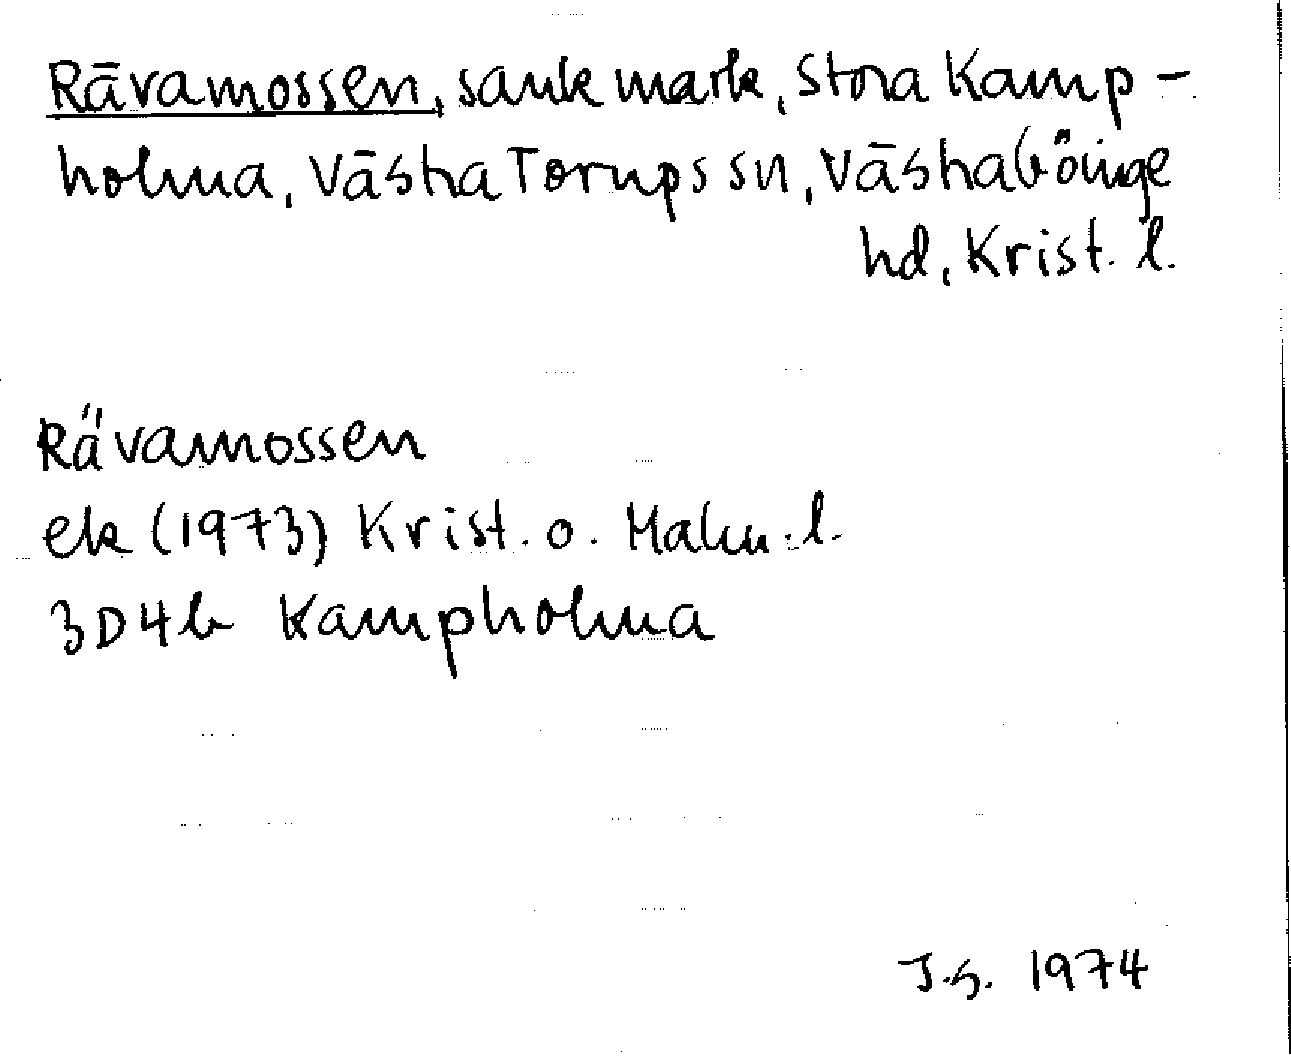 Rävamossen, sank mark, Stora Kamp-
holma, Västra Torups sn, Västra Göinge
hd, Krist. l.
Rävamossen
ek (1973) Krist. o. Malm. l.
3D4b Kampholma
J.S. 1974